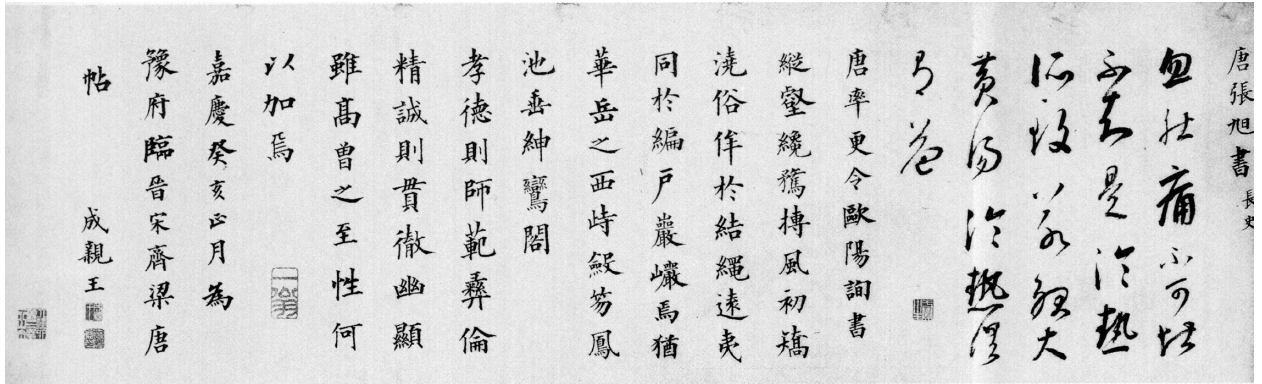 唐張旭書 長史
忽肚痛不可堪
不知是冷熱
所致欲服大
黃湯冷熱俱
有益
唐率更令歐陽詢書
縱壑纔騖搏風初矯
澆俗侔於結繩遠夷
同於編戶巖巖焉猶
華岳之西峙笏鳳
池垂紳鸞閣
孝德則師範彝倫
精誠則貫徹幽顯
雖高曾之至性何
以加焉
嘉慶癸亥正月為
豫府臨晉宋齊梁唐
帖
成親王